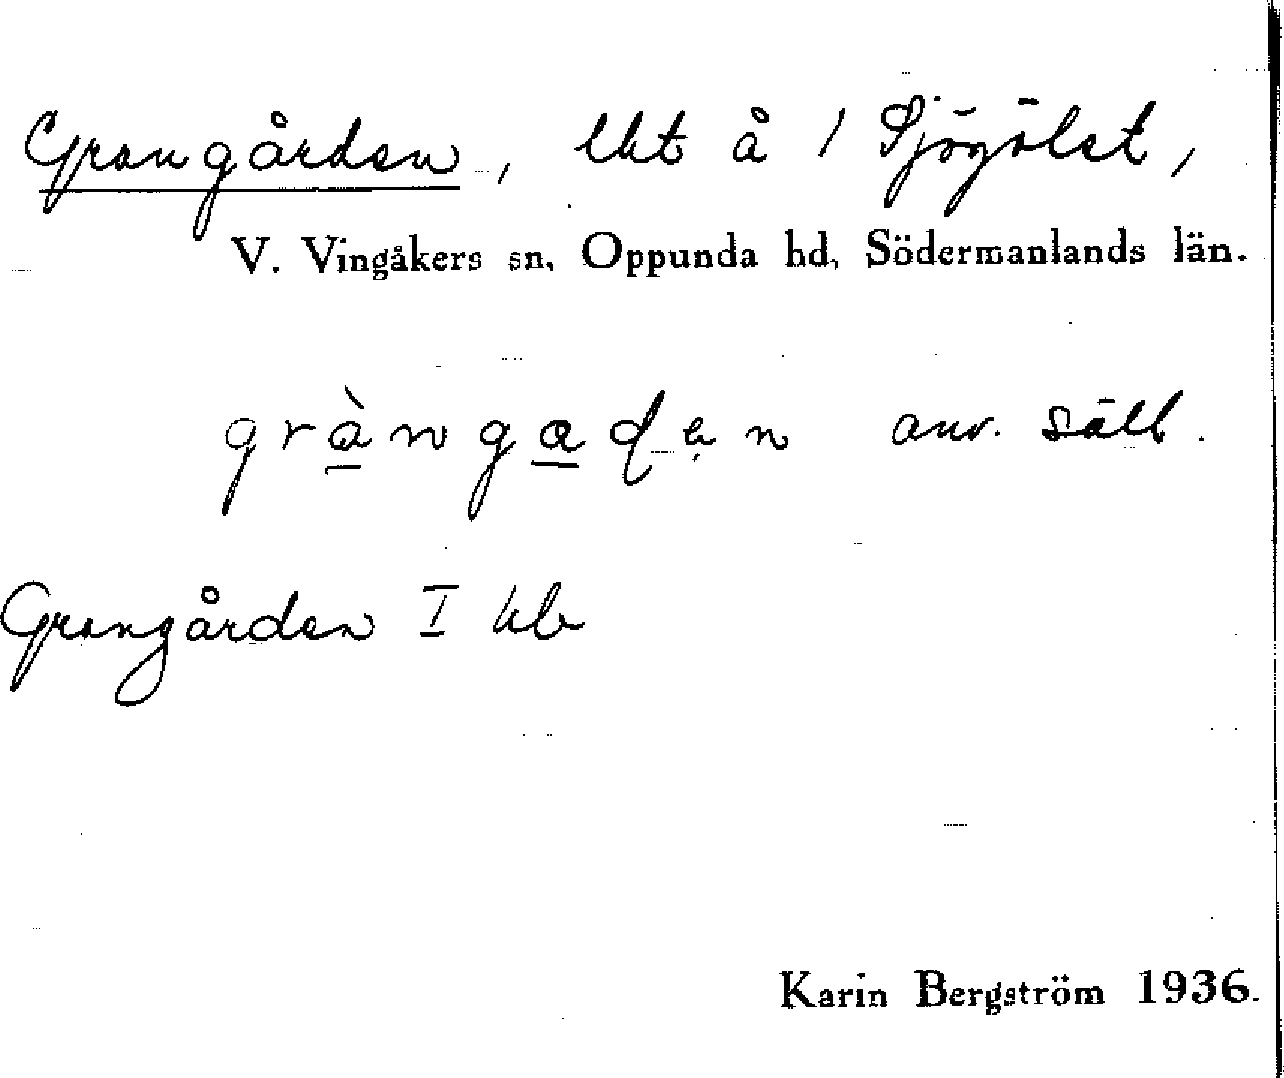 Grangården, lht å 1 Sjögölet,
V. Vingåkers sn, Oppunda hd, Södermanlands län.
gràngaden anv. säll.
Grangården I kb
Karin Bergström 1936.